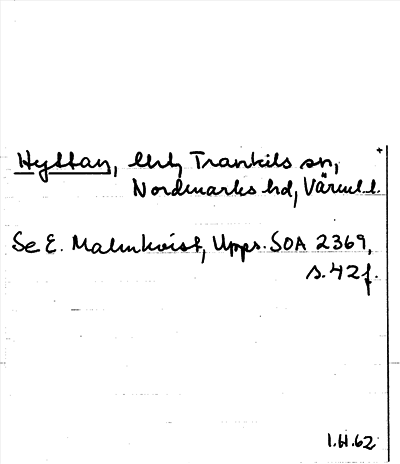 Hyttan, Trankils sn,
Nordmarks hd, Värml.l.
Se E. Malmkvist, Upps. SOA 2369,
s. 42f.